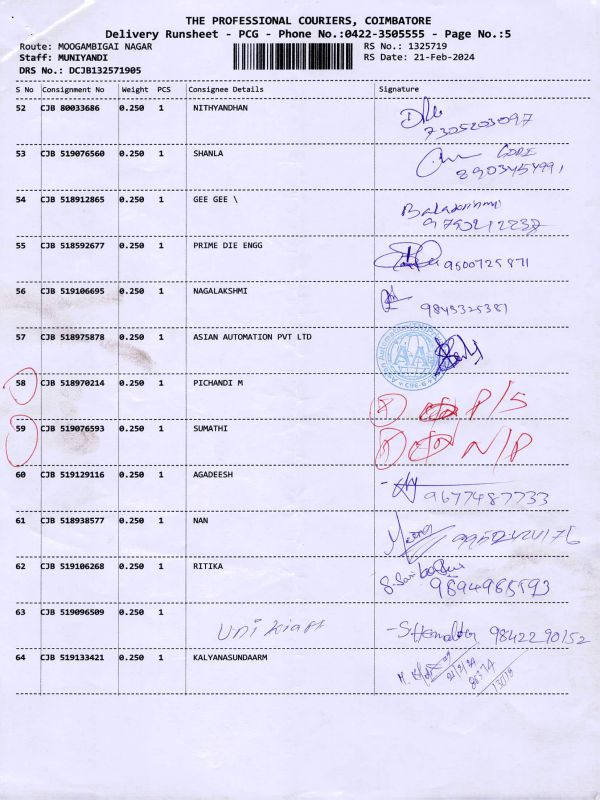 THE PROFESSIONAL COURIERS, COIMBATORE
Delivery Runsheet - PCG - Phone No.:0422-3505555 - Page No.:5
Route: MOOGAMBIGAI NAGAR RS No.: 1325719
Staff: MUNIYANDI RS Date: 21-Feb-2024
DRS No.: DCJB132571905
S No Consignment No Weight PCS Consignee Details Signature
52 CJB 80033686 0.250 1 NITHYANDHAN
7305203097
53 CJB 519076560 0.250 1 SHANLA
54 CJB 518912865 0.250 1 GEE GEE \
55 CJB 518592677 0.250 1 PRIME DIE ENGG 9500725871
56 CJB 519106695 0.250 1 NAGALAKSHMI
9845325381
57 CJB 518975878 0.250 1 ASIAN AUTOMATION PVT LTD
58 CJB 518970214 0.250 1 PICHANDI M
P/S
59 CJB 519076593 0.250 1 SUMATHI
N/P
60 CJB 519129116 0.250 1 AGADEESH
9677487733
61 CJB 518938577 0.250 1 NAN
62 CJB 519106268 0.250 1 RITIKA
63 CJB 519096509 0.250 1
9842290152
64 CJB 519133421 0.250 1 KALYANASUNDAARM